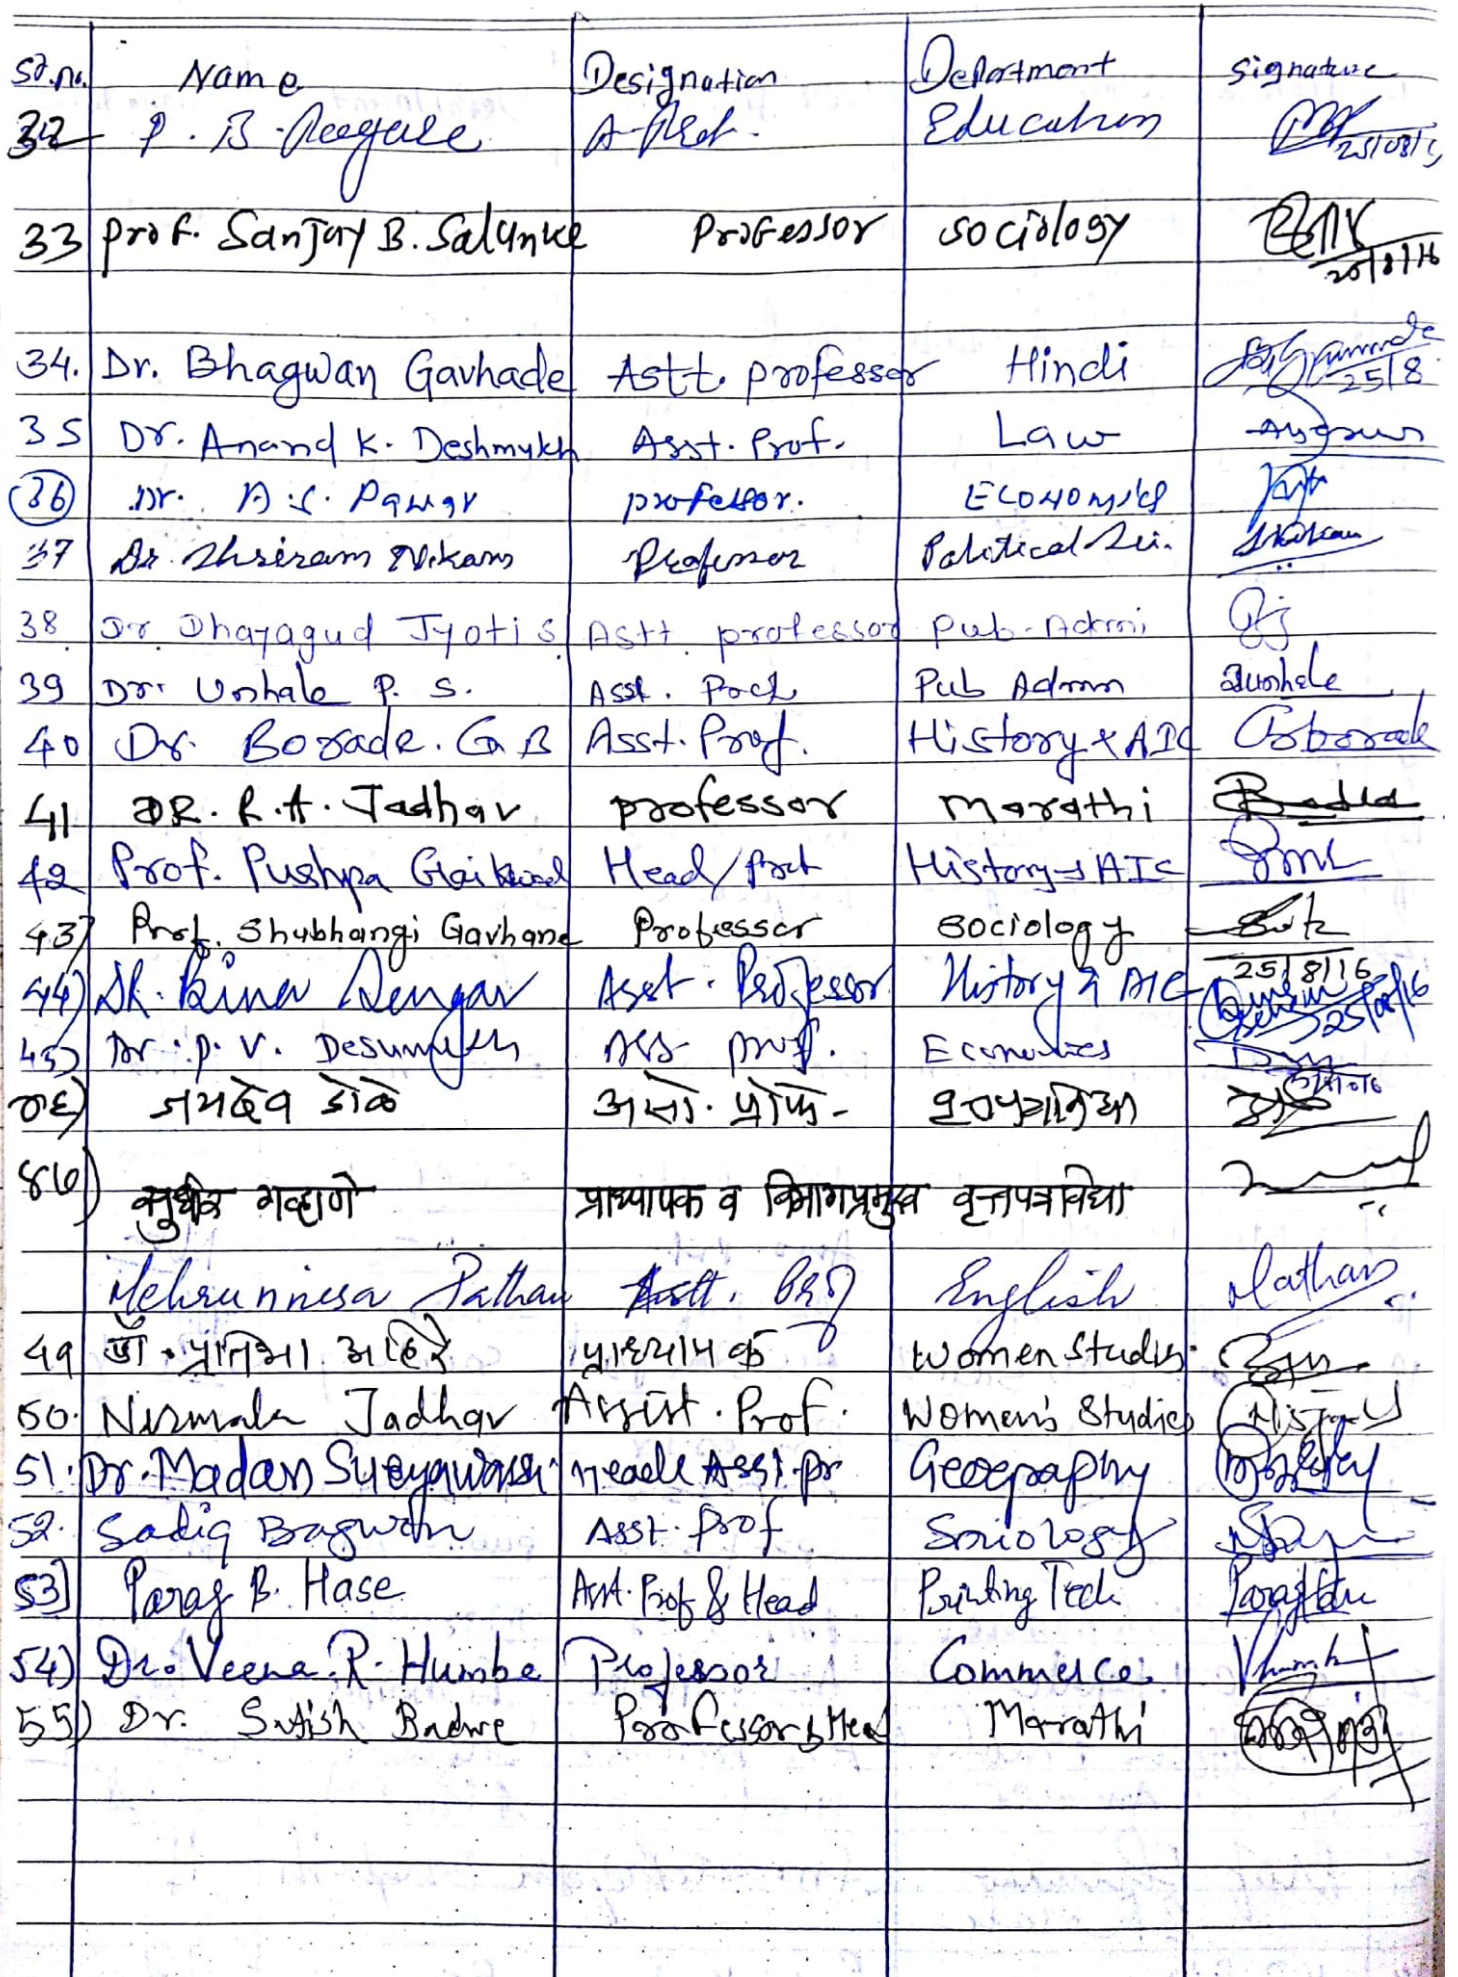 Sr.no. Name Designation Department Signature
32 P. B. A-Prof. Education 25/08/
33 Prof. Sanjay B. Salunke Professor Sociology 25/8/16
34. Dr. Bhagwan Gavhade Astt. professor Hindi 25/8
35 Dr. Anand K. Deshmukh Asst. Prof. Law
36 Dr. A.S. Pawar professor. Economics
37 Dr. Shriram Nikam Professor Political Sci.
38 Dr Dhayagud Jyoti S Astt professor Pub-Admi
39 Dr. Unhale P. S. Asst. Prof Pub Admn Aunhale
40 Dr. Borade. G B Asst. Prof. History & AIC Gborade
41 DR. R.A. Jadhav professor Marathi
42 Prof. Pushpa Gaikwad Head/Prof History & AIC
43) Prof. Shubhangi Gavhane Professor Sociology 25/8/16
44) Dr. Bina Sengar Asst. Professor History & AIC 25/08/16
45) Dr. P. V. Desumukh Ass prof. Economics
४६) जयदेव डोळे असो. प्रोफे-
४७) सुधीर गव्हाणे प्राध्यापक व विभागप्रमुख वृत्तपत्रविद्या
Mehrunnisa Pathan Astt. Prof English Pathan
49 डॉ. प्रतिभा अहिरे प्राध्यापक Women Studies.
50. Nirmala Jadhav Assist. Prof. Women's Studies
51. Dr. Madan Suryawanshi Head & Assi. pr Geography
52. Sadiq Bagwan Asst. Prof Sociology
53] Parag B. Hase Asst. Prof & Head Printing Tech Paraghase
54) Dr. Veena. R. Humbe Professor Commerce
55) Dr. Satish Badwe Professor & Head Marathi